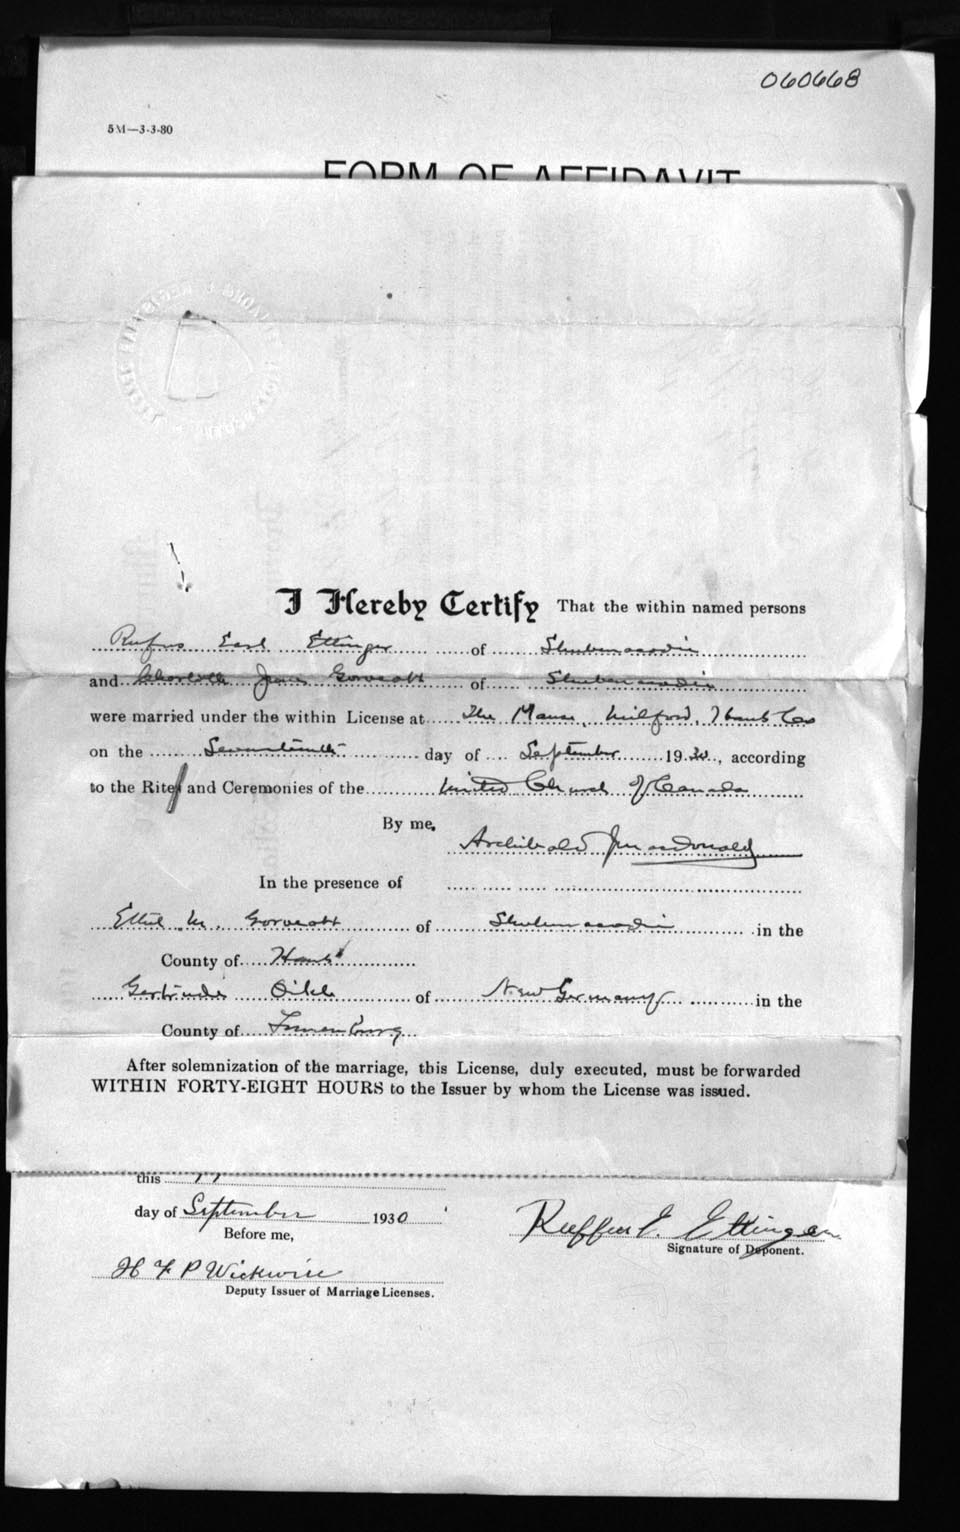 060668
5M—3-3-30
FORM OF AFFIDAVIT
I Hereby Certify That the within named persons
Rufus Earl Ettinger of Shubenacadie
and Jean of Shubenacadie
were married under the within License at The Manse, Milford, Hants Co
on the Seventeenth day of September 1930, according
to the Rites and Ceremonies of the United Church of Canada
By me, Archibald
In the presence of
Ethel M. of Shubenacadie in the
County of Hants
Gertrude of New Germany in the
County of Lunenburg
After solemnization of the marriage, this License, duly executed, must be forwarded
WITHIN FORTY-EIGHT HOURS to the Issuer by whom the License was issued.
this 17
day of September 1930
Before me,
Ruffus E. Ettinger
Signature of Deponent.
H F P Wickwire
Deputy Issuer of Marriage Licenses.